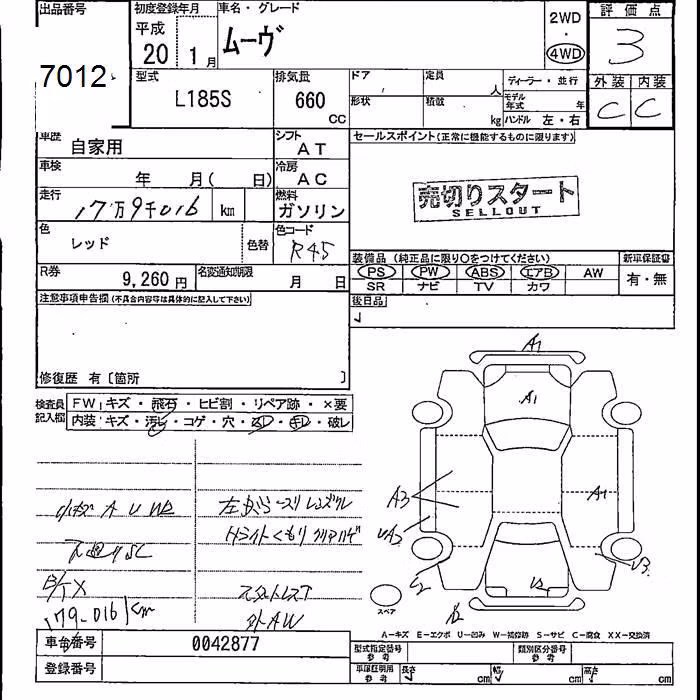 出品番号
7012
初度登録年月
平成
20 1月
車名・グレード
ムーヴ
2WD
・
4WD
評価点
3
型式
L185S
排気量
660
CC
ドア
定員
人
形状
積載
kg
ディーラー・並行
モデル
年式 年
ハンドル 左・右
外装 内装
C C
車歴
自家用
シフト
AT
セールスポイント(正常に機能するものに限ります)
売切りスタート
SELLOUT
車検
年 月( 日)
冷房
AC
走行
17万9千016 km
燃料
ガソリン
色
レッド
色替
色コード
R45
R券
9,260円
名変通知期限
月 日
装備品 (純正品に限り○をつけてください)
PS PW ABS エアB AW
SR ナビ TV カワ
新車保証書
有・無
注意事項申告欄(不具合内容等は具体的に記入して下さい)
後日品
修復歴 有〔箇所 〕
検査員
記入欄
FW キズ・飛石・ヒビ割・リペア跡・×要
内装 キズ・汚レ・コゲ・穴・スレ・キレ・破レ
小キズ A U W2
179-016km
スタットレスT
外AW
A1
A1
A3
A1
UA3
U3
スペア
A-キズ E-エクボ U-凹み W-補修跡 S-サビ C-腐食 XX-交換済
車台番号
0042877
登録番号
型式指定番号
参考
類別区分番号
参考
車庫証明用
参考
長さ cm 幅 cm 高さ cm